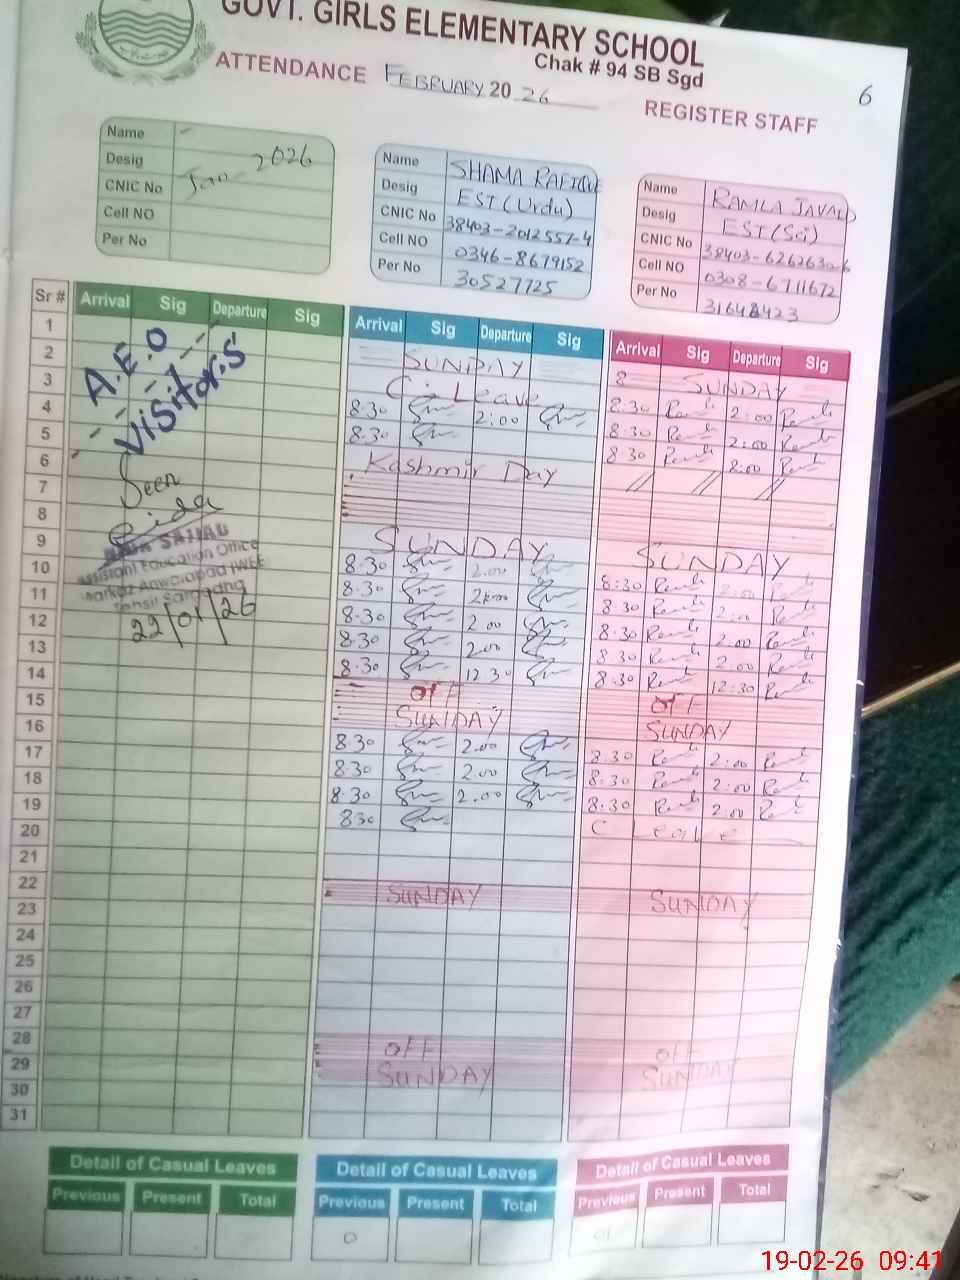 GOVT. GIRLS ELEMENTARY SCHOOL
Chak # 94 SB Sgd
ATTENDANCE FEBRUARY 20 26
REGISTER STAFF
6
Name
Desig
CNIC No
Cell NO
Per No
Jan - 2026
Name SHAMA RAFIQUE
Desig EST (Urdu)
CNIC No 38403-2012557-4
Cell NO 0346-8679152
Per No 30527725
Name RAMLA JAVAID
Desig EST (Sci)
CNIC No 38403-6262630-6
Cell NO 0308-6711672
Per No 31648423
Sr # Arrival Sig Departure Sig
Arrival Sig Departure Sig
Arrival Sig Departure Sig
1
2
3
4
5
6
7
8
9
10
11
12
13
14
15
16
17
18
19
20
21
22
23
24
25
26
27
28
29
30
31
A.E.O
Visitor.S
Seen
Assistant Education Office
Markaz
Tehsil Sargodha
22/01/26
SUNDAY
C. Leave
8:30 2:00
8:30
Kashmir Day
SUNDAY
8.30 2.00
8.30 2:00
8.30 2.00
8.30 2.00
8.30 12 30
off
SUNDAY
8 30 2.00
8.30 2.00
8.30 2.00
830
SUNDAY
off
SUNDAY
8
SUNDAY
8.30 2:00
8:30 2:00
8 30 2:00
// // //
SUNDAY
8:30 2:00
8 30 2:00
8:30 2.00
8 30 2:00
8:30 12:30
off
SUNDAY
8.30 2:00
8:30 2:00
8:30 2:00
C Leave
SUNDAY
off
SUNDAY
Detail of Casual Leaves
Previous Present Total
Detail of Casual Leaves
Previous Present Total
0
Detail of Casual Leaves
Previous Present Total
01
19-02-26 09:41